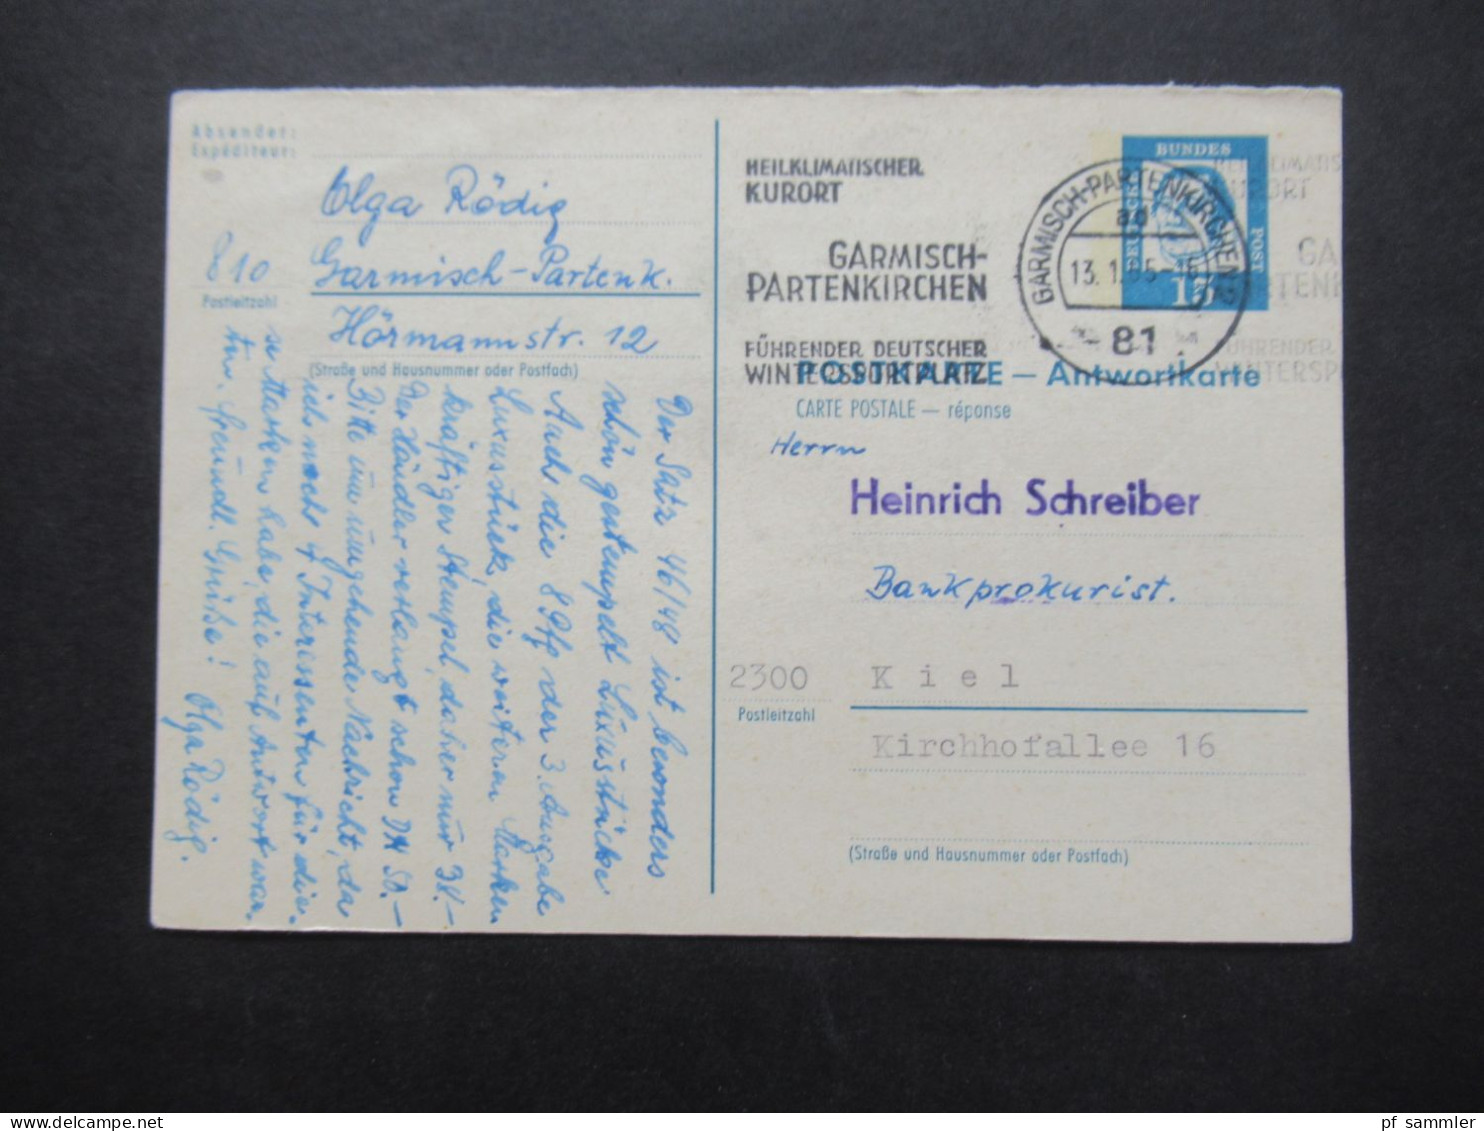 Absender:
Expéditeur:
Olga Rödig
810
Garmisch-Partenk.
Postleitzahl
Hörmannstr. 12
(Straße und Hausnummer oder Postfach)
Der Satz 46/48 ist besonders
schön gestempelt Luxusstücke
Auch die 8 Pfg der 3. Ausgabe
Luxusstück, die weiteren Marken
kräftiger Stempel, daher nur 38.-
Der Händler verlangt schon DM 50.-
Bitte um umgehende Nachricht, da
ich noch Interessenten für die-
se Marken habe, die auf Antwort war-
ten. Freundl. Grüße!
Olga Rödig.
HEILKLIMATISCHER
KURORT
GARMISCH-
PARTENKIRCHEN
FÜHRENDER DEUTSCHER
WINTERSPORTPLATZ
GARMISCH-PARTENKIRCHEN 2
ad
13.1.65-16
81
BUNDES
POST
15
HEILKLIMATIS
KURORT
GA
PARTENKI
FÜHRENDER
WINTERSP
POSTKARTE — Antwortkarte
CARTE POSTALE — réponse
Herrn
Heinrich Schreiber
Bankprokurist.
2300 Kiel
Postleitzahl
Kirchhofallee 16
(Straße und Hausnummer oder Postfach)
pf sammler